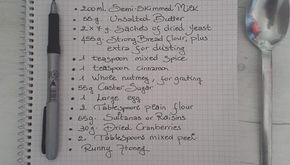 • 200ml Semi-Skimmed Milk
• 55g. Unsalted Butter
• 2 x 7 g. Sachets of dried yeast
• 455g. Strong Bread flour, plus
extra for dusting
• 1 teaspoon mixed spice
• 1 teaspoon cinnamon
• 1 Whole nutmeg, for grating
• 55g Caster Sugar
• 1 large egg
• 2 Tablespoon plain flour
• 65g. Sultanas or Raisins
• 30g. Dried Cranberries
• 2 Tablespoon mixed peel
• Runny Honey